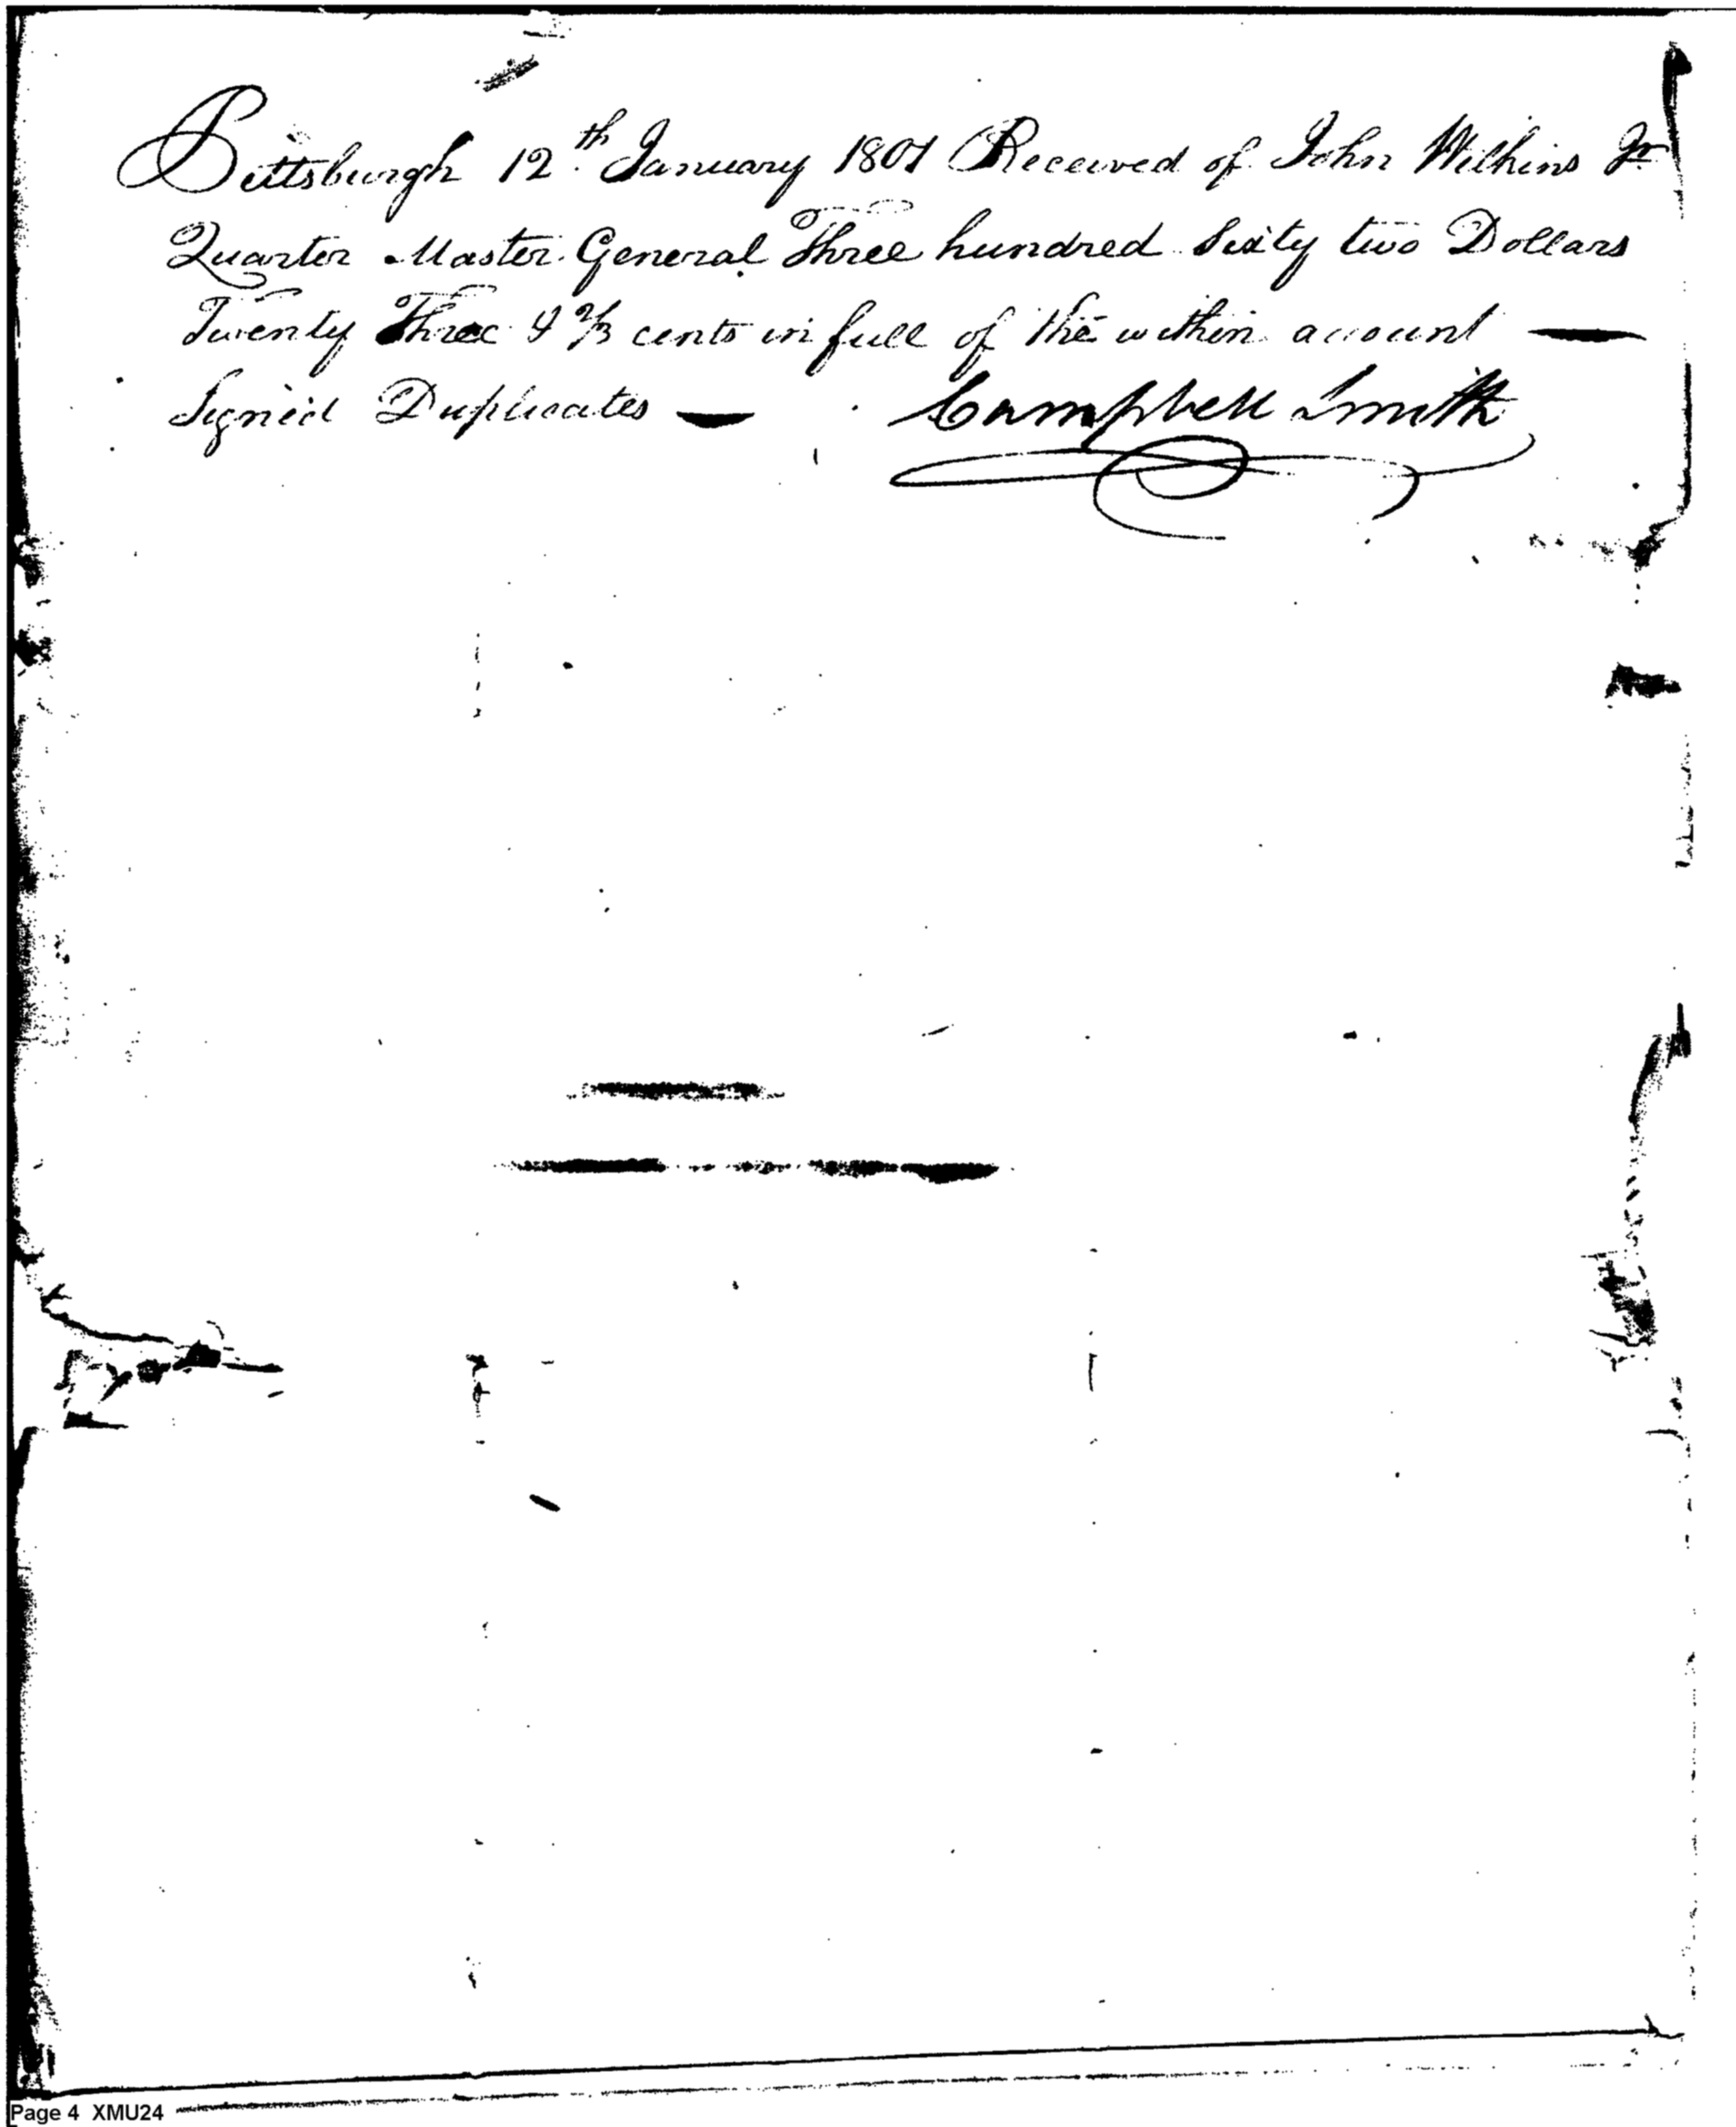 Pittsburgh 12th January 1801 Received of John Wilkins Jr
Quarter Master General Three hundred Sixty two Dollars
Twenty Three & 2/3 cents in full of the within account —
Signed Duplicates — Campbell Smith
Page 4 XMU24